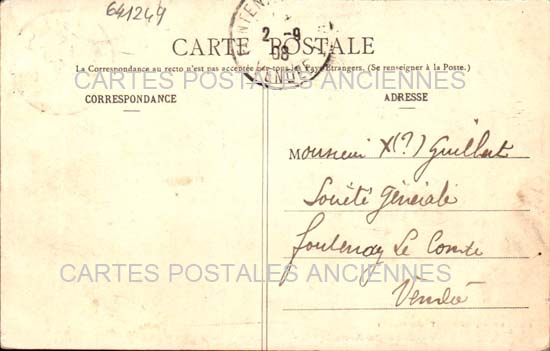 641249
2-9
08
VENDÉE
CARTE POSTALE
La Correspondance au recto n'est pas acceptée par tous les Pays Étrangers. (Se renseigner à la Poste.)
CARTES POSTALES ANCIENNES
CORRESPONDANCE
ADRESSE
Monsieur X(?) Guillet
Société Générale
Fontenay Le Comte
CARTES POSTALES ANCIENNES
Vendée